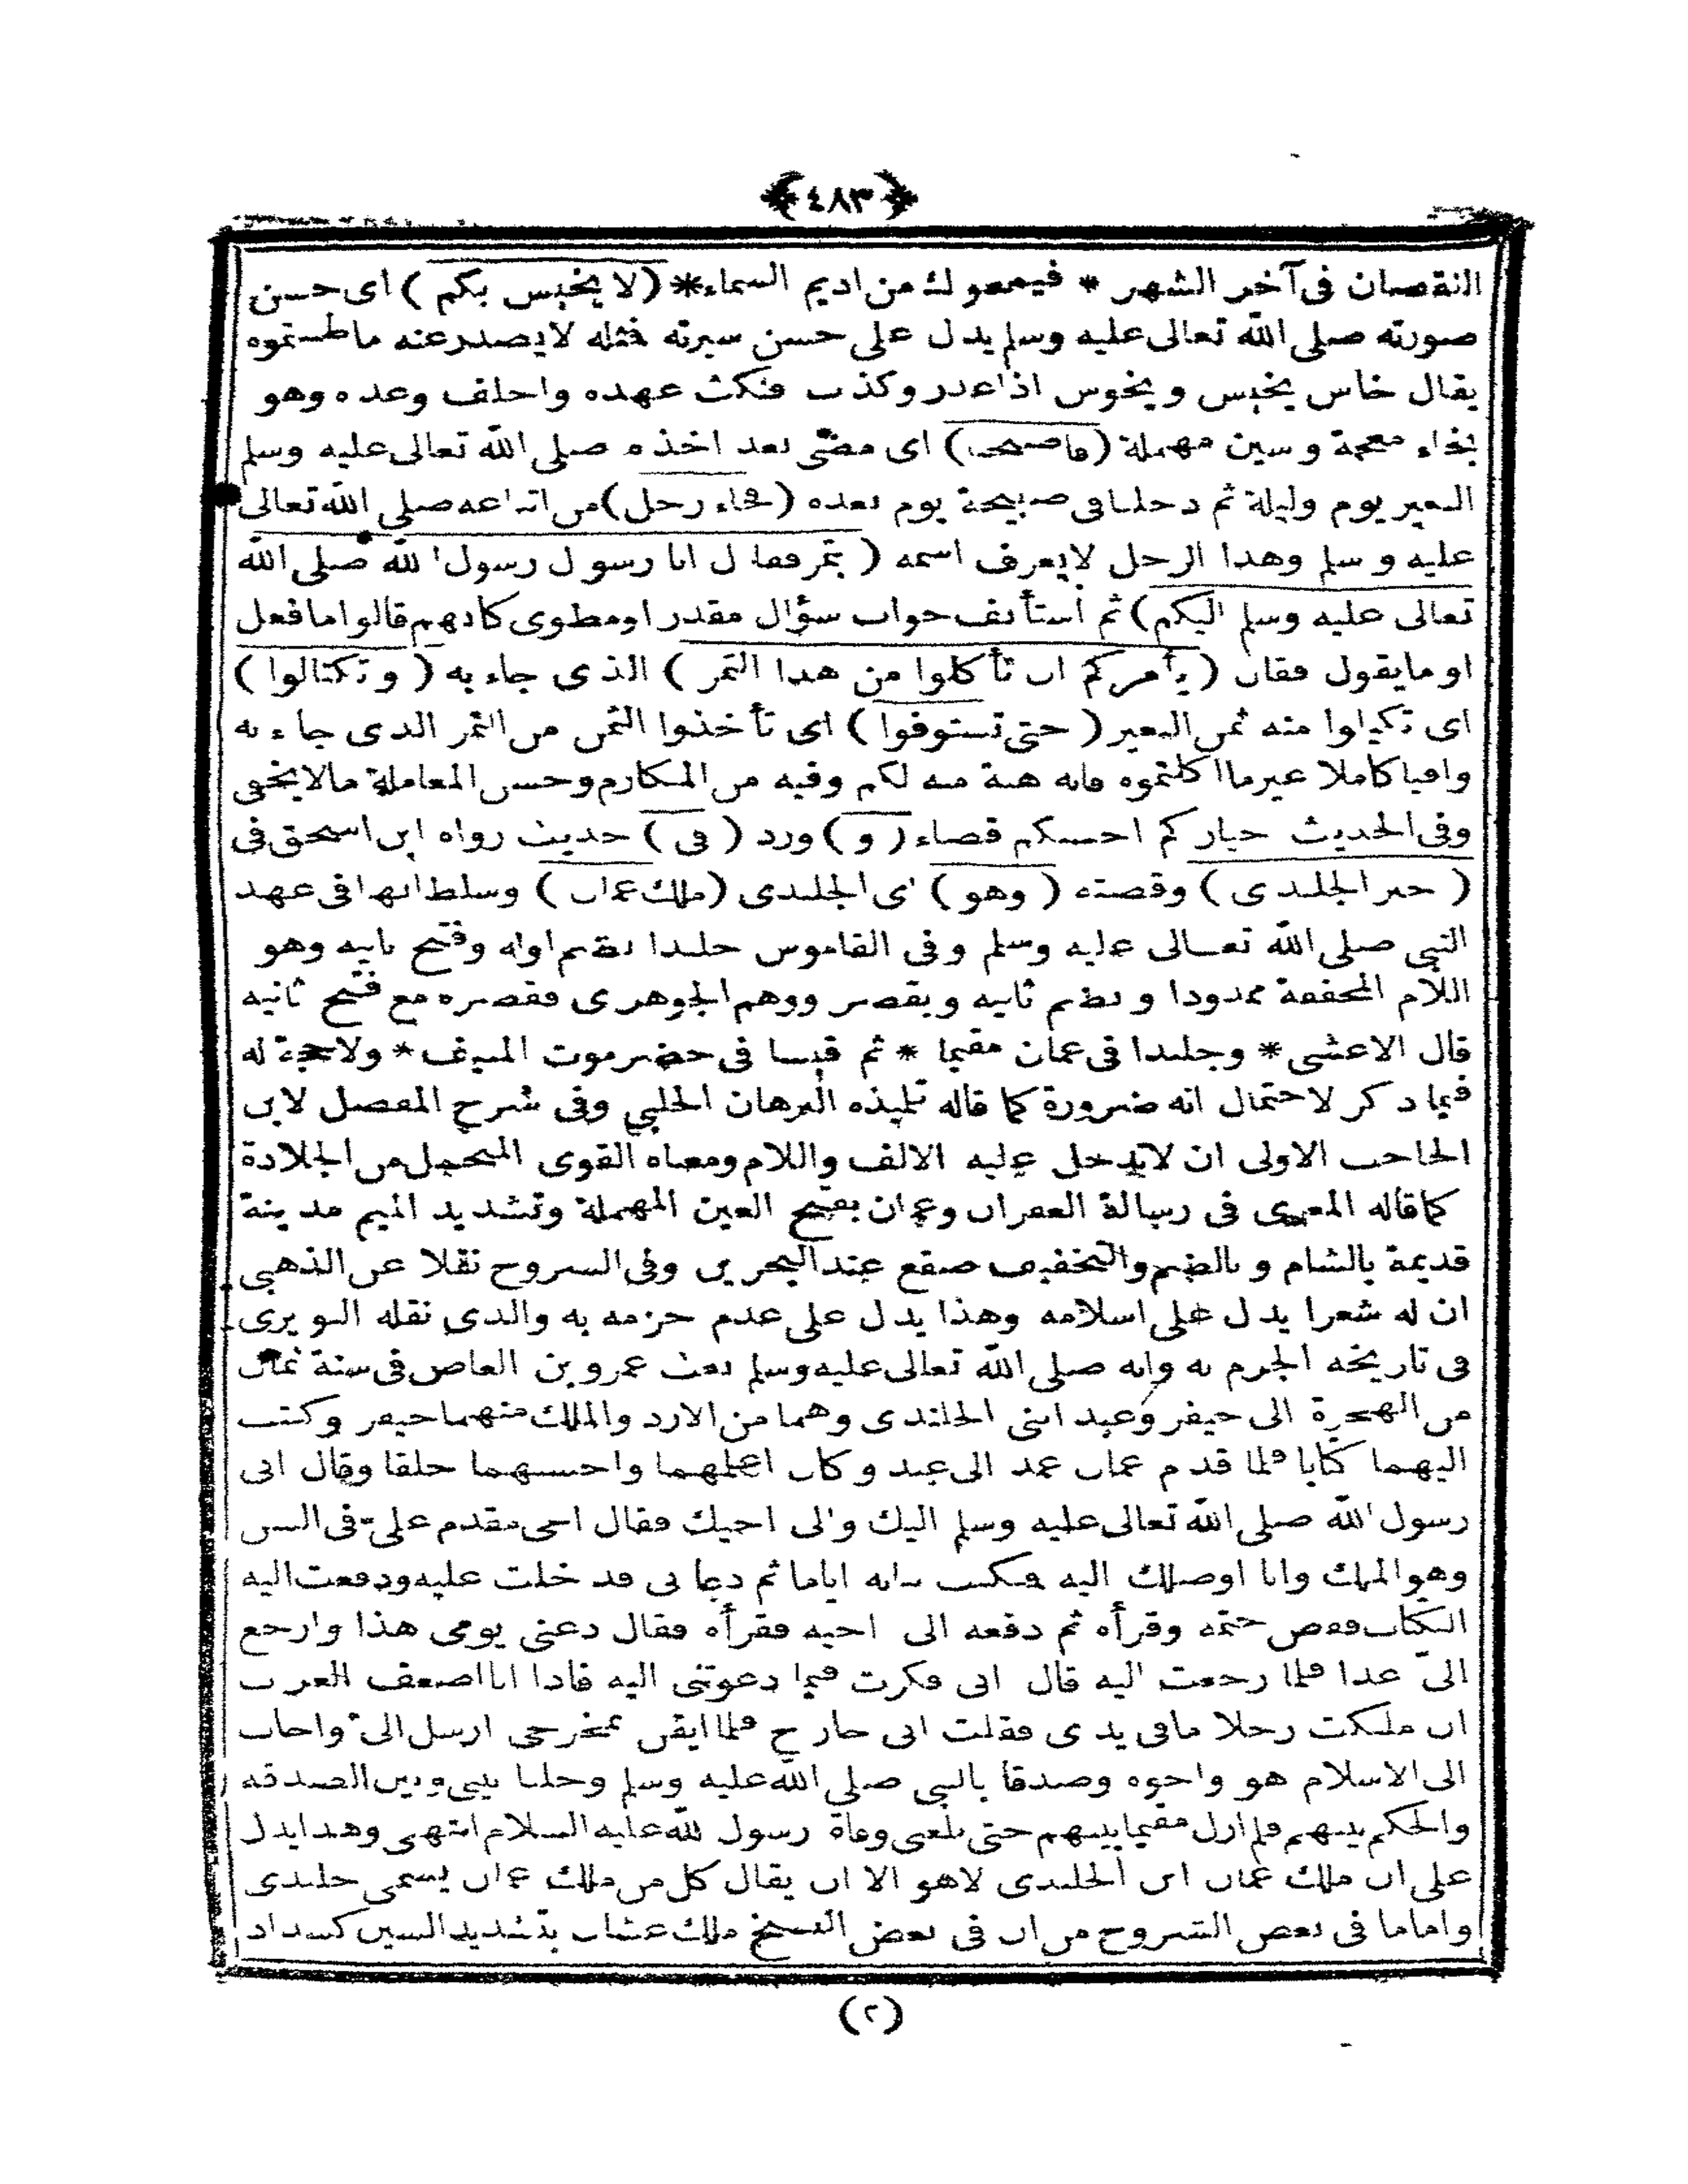 ﴿٤٨٣﴾
النقصان فى آخر الشهر * فيمحوك من اديم السماء * (لا يخيس بكم) اى حسن
صورته صلى الله تعالى عليه وسلم يدل على حسن سيرته فمثله لا يصدر عنه ما ظننتموه
يقال خاس يخيس ويخوس اذا غدر وكذب فنكث عهده واخلف وعده وهو
بخاء معجمة وسين مهملة (فاصبحنا) اى مضى بعد اخذه صلى الله تعالى عليه وسلم
البعير يوم وليلة ثم دخلنا فى صبيحة يوم بعده (فجاء رجل) من اتباعه صلى الله تعالى
عليه وسلم وهذا الرجل لا يعرف اسمه (بتمر فقال انا رسول رسول الله صلى الله
تعالى عليه وسلم اليكم) ثم استأنف جواب سؤال مقدر او مطوى كانهم قالوا ما فعل
او ما يقول فقال (يأمركم ان تأكلوا من هذا التمر) الذى جاء به (وتكتالوا)
اى تكيلوا منه ثمن البعير (حتى تستوفوا) اى تأخذوا الثمن من التمر الذى جاء به
وافيا كاملا غير ما اكلتموه فانه هبة منه لكم وفيه من المكارم وحسن المعاملة مالا يخفى
وفى الحديث خياركم احسنكم قضاء (و) ورد (فى) حديث رواه ابن اسحق فى
(خبر الجلندى) وقصته (وهو) اى الجلندى (ملك عمان) وسلطانها فى عهد
النبى صلى الله تعالى عليه وسلم وفى القاموس جلندا بضم اوله وفتح ثانيه وهو
اللام المخففة ممدودا وبضم ثانيه ويقصر ووهم الجوهرى فقصره مع فتح ثانيه
قال الاعشى * وجلندا فى عمان مقيما * ثم قيسا فى حضرموت المنيف * ولا حجة له
فيما ذكر لاحتمال انه ضرورة كما قاله تلميذه البرهان الحلبى وفى شرح المفصل لابن
الحاجب الاولى ان لا يدخل عليه الالف واللام ومعناه القوى المتحمل من الجلادة
كما قاله المعرى فى رسالة الغفران وعمان بفتح العين المهملة وتشديد الميم مدينة
قديمة بالشام وبالضم والتخفيف صقع عند البحرين وفى الشروح نقلا عن الذهبى
ان له شعرا يدل على اسلامه وهذا يدل على عدم جزمه به والذى نقله النويرى
فى تاريخه الجزم به وانه صلى الله تعالى عليه وسلم بعث عمرو بن العاص فى سنة ثمان
من الهجرة الى جيفر وعبد ابنى الجلندى وهما من الازد والملك منهما جيفر وكتب
اليهما كتابا فلما قدم عمان عمد الى عبد وكان اعلمهما واحسنهما خلقا وقال انى
رسول الله صلى الله تعالى عليه وسلم اليك والى اخيك فقال اخى مقدم علىّ فى السن
وهو الملك وانا اوصلك اليه فمكث ببابه اياما ثم دعا بى فدخلت عليه ودفعت اليه
الكتاب ففض ختمه وقرأه ثم دفعه الى اخيه فقرأه فقال دعنى يومى هذا وارجع
الىّ غدا فلما رجعت اليه قال انى فكرت فيما دعوتنى اليه فاذا انا اضعف العرب
ان ملكت رجلا ما فى يدى فقلت انى خارج فلما ايقن بمخرجى ارسل الىّ واجاب
الى الاسلام هو واخوه وصدقا بالنبى صلى الله عليه وسلم وخليا بينى وبين الصدقة
والحكم بينهم فلم ازل مقيما بينهم حتى بلغنى وفاة رسول الله عليه السلام انتهى وهذا يدل
على ان ملك عمان ابن الجلندى لا هو الا ان يقال كل من ملك عمان يسمى جلندى
واما ما فى بعض الشروح من ان فى بعض النسخ ملك غسان بتشديد السين كشداد
(٢)